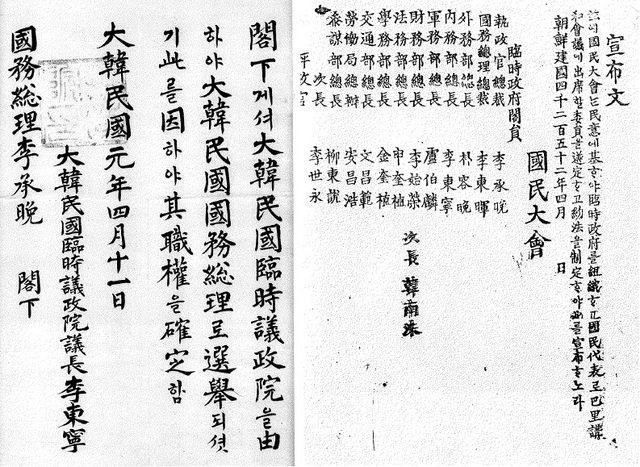 宣布文
玆에國民大會는民意에基ᄒᆞ야臨時政府를組織ᄒᆞ고國民代表로巴里講
和會議에出席할委員을選定ᄒᆞ고約法을制定ᄒᆞ야此를宣布ᄒᆞ노라
朝鮮建國四千二百五十二年四月 日
國民大會
臨時政府閣員
執政官總裁 李承晩
國務總理總裁 李東暉
外務部總長 朴容晩
內務部總長 李東寧
軍務部總長 盧伯麟
財務部總長 李始榮 次長 韓南洙
法務部總長 申奎植
學務部總長 金奎植
交通部總長 文昌範
勞働局總辦 安昌浩
參謀部總長 柳東說
次長 李世永
閣下게셔大韓民國臨時議政院을由
하야大韓民國國務總理로選擧되셧
기此를因하야其職權을確定함
大韓民國元年四月十一日
大韓民國臨時議政院議長李東寧
國務總理李承晩 閣下